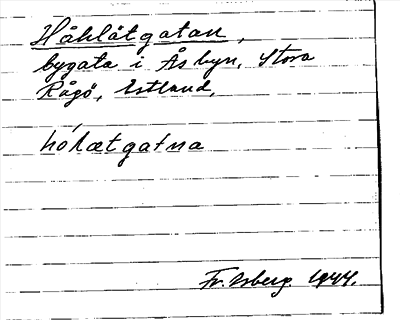 Håklätgatan,
bygata i Åsbyn, Stora
Rågö, Estland.
hókætgatna
Fr. Isberg 1944.